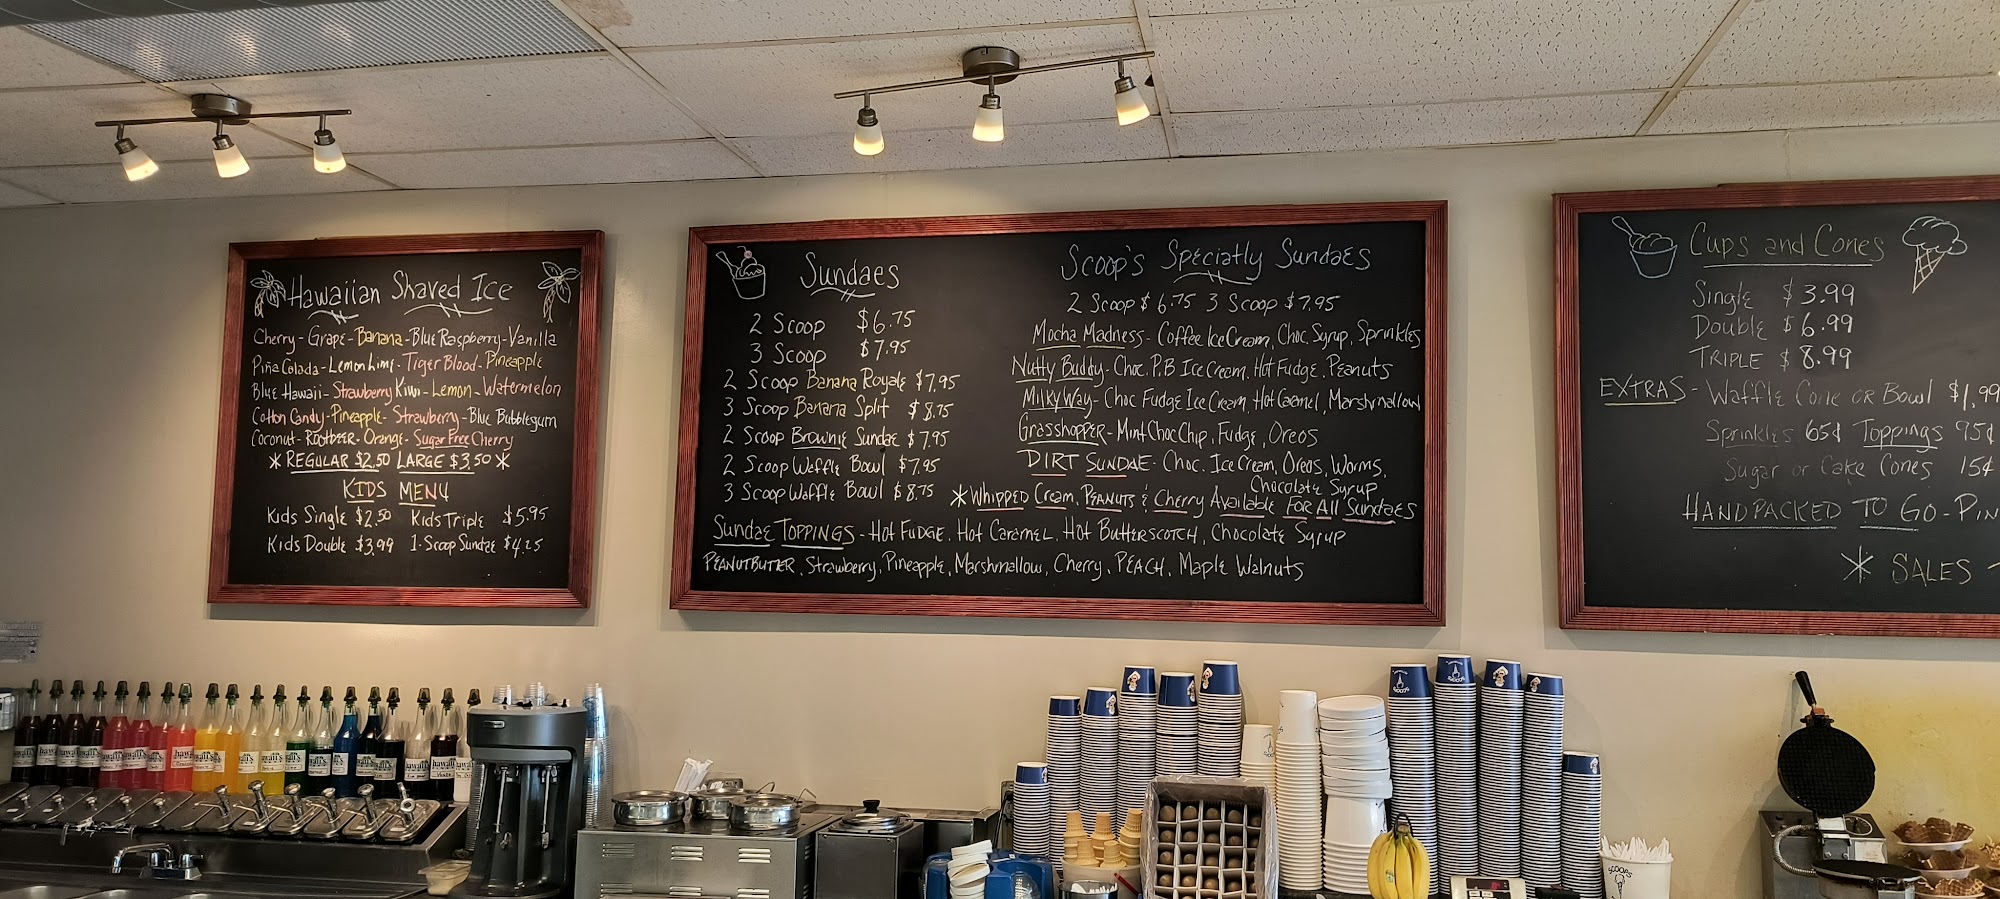 Hawaiian Shaved Ice
Cherry - Grape - Banana - Blue Raspberry - Vanilla
Piña Colada - Lemon Lime - Tiger Blood - Pineapple
Blue Hawaii - Strawberry Kiwi - Lemon - Watermelon
Cotton Candy - Pineapple - Strawberry - Blue Bubblegum
Coconut - Rootbeer - Orange - Sugar Free Cherry
* REGULAR $2.50 LARGE $3.50 *
KIDS MENU
Kids Single $2.50 Kids Triple $5.95
Kids Double $3.99 1-Scoop Sundae $4.25
Sundaes
2 Scoop $6.75
3 Scoop $7.95
2 Scoop Banana Royale $7.95
3 Scoop Banana Split $8.75
2 Scoop Brownie Sundae $7.95
2 Scoop Waffle Bowl $7.95
3 Scoop Waffle Bowl $8.75
Scoop's Specialty Sundaes
2 Scoop $6.75 3 Scoop $7.95
Mocha Madness - Coffee Ice Cream, Choc. Syrup, Sprinkles
Nutty Buddy - Choc. P.B Ice Cream, Hot Fudge, Peanuts
Milky Way - Choc Fudge Ice Cream, Hot Caramel, Marshmallow
Grasshopper - Mint Choc Chip, Fudge, Oreos
DIRT SUNDAE - Choc. Ice Cream, Oreos, Worms,
Chocolate Syrup
* Whipped Cream, PEANUTS & Cherry Available FOR All Sundaes
Sundae TOPPINGS - Hot FUDGE, Hot Caramel, Hot Butterscotch, Chocolate Syrup
PEANUTBUTTER, Strawberry, Pineapple, Marshmallow, Cherry, PEACH, Maple Walnuts
Cups and Cones
Single $3.99
Double $6.99
TRIPLE $8.99
EXTRAS - Waffle Cone OR Bowl $1.99
Sprinkles 65¢ Toppings 95¢
Sugar or Cake Cones 15¢
HANDPACKED TO GO - PIN
* SALES
SCOOPS